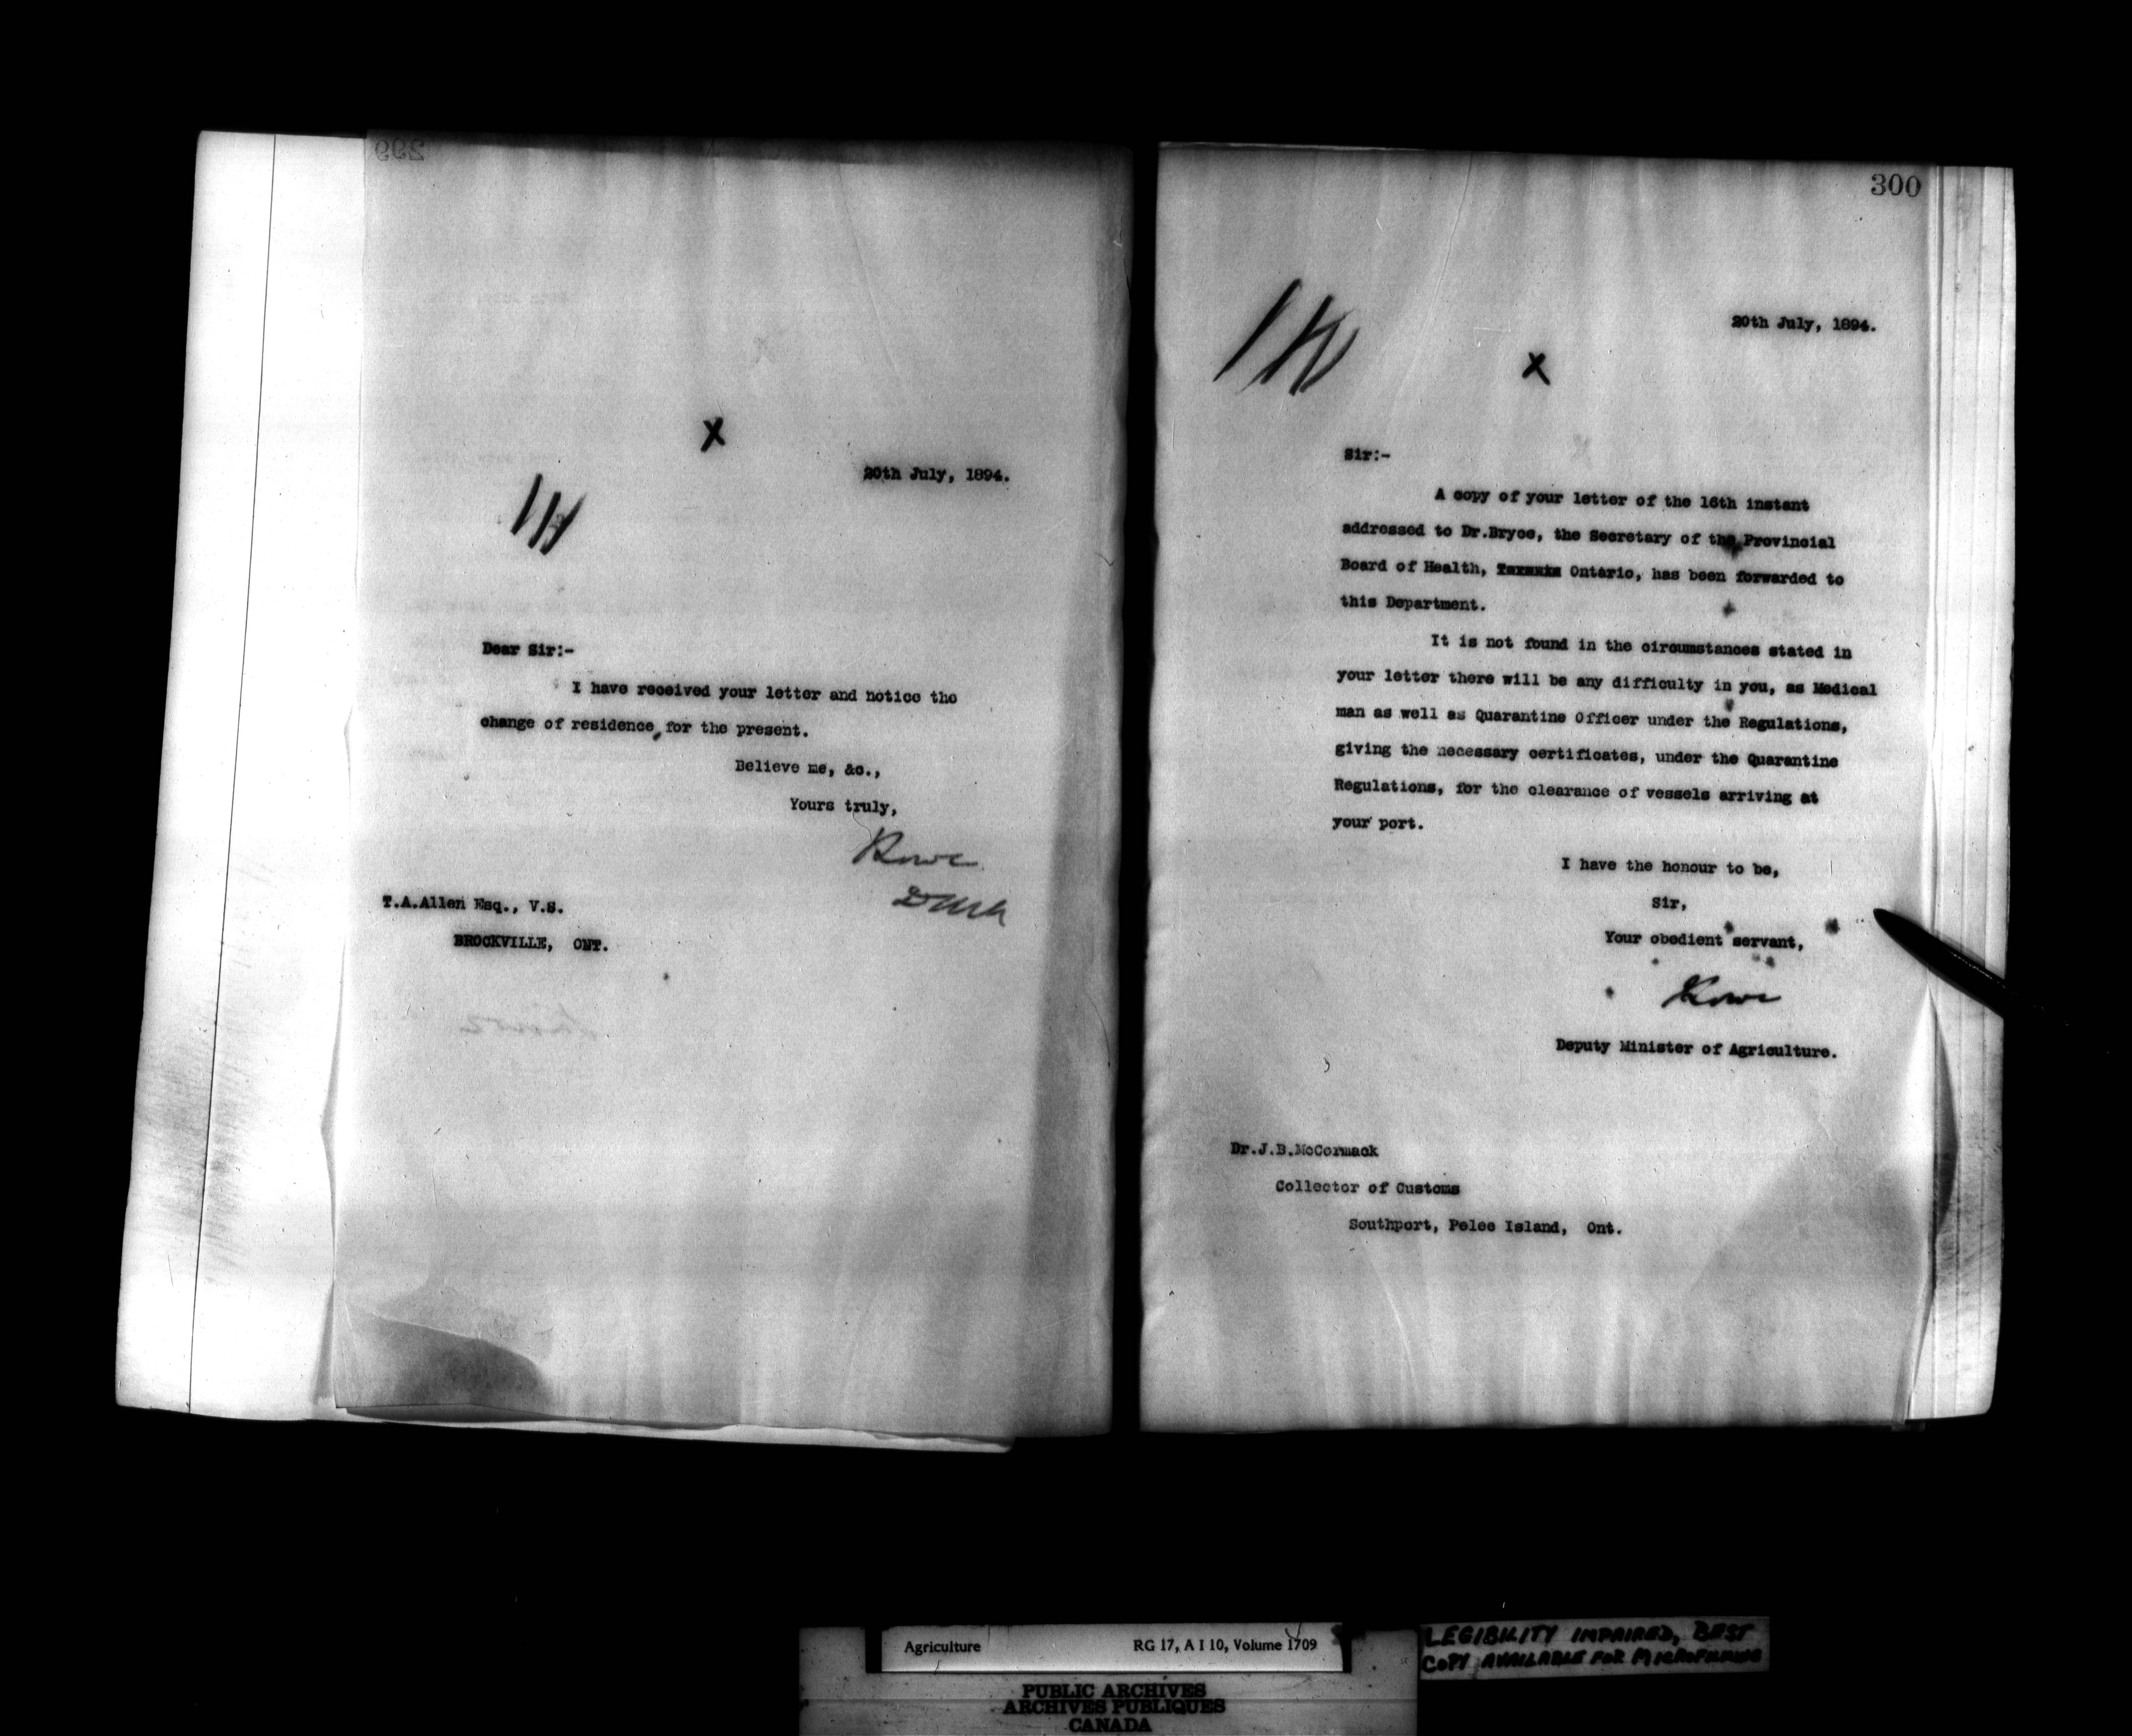 299
X
20th July, 1894.
Dear Sir:-
I have received your letter and notice the
change of residence, for the present.
Believe me, &c.,
Yours truly,
T.A.Allen Esq., V.S.
BROCKVILLE, ONT.
300
20th July, 1894.
X
Sir:-
A copy of your letter of the 16th instant
addressed to Dr.Bryce, the Secretary of the Provincial
Board of Health, Ontario, has been forwarded to
this Department.
It is not found in the circumstances stated in
your letter there will be any difficulty in you, as Medical
man as well as Quarantine Officer under the Regulations,
giving the necessary certificates, under the Quarantine
Regulations, for the clearance of vessels arriving at
your port.
I have the honour to be,
Sir,
Your obedient servant,
Deputy Minister of Agriculture.
Dr.J.B.McCormack
Collector of Customs
Southport, Pelee Island, Ont.
Agriculture RG 17, A I 10, Volume 1709
LEGIBILITY IMPAIRED, BEST
COPY AVAILABLE FOR MICROFILMING
PUBLIC ARCHIVES
ARCHIVES PUBLIQUES
CANADA